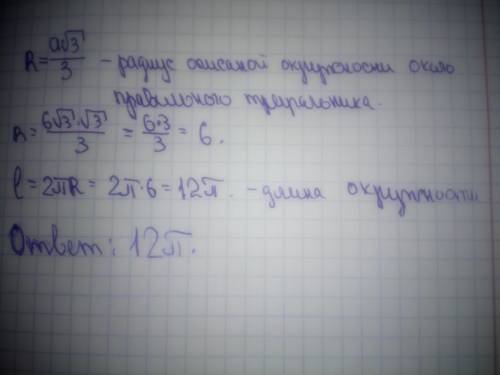 R = a√3/3 - радиус описаной окружности около
правильного треугольника.
R = 6√3·√3/3 = 6·3/3 = 6.
l = 2πR = 2π·6 = 12π. - длина окружности
Ответ: 12π.